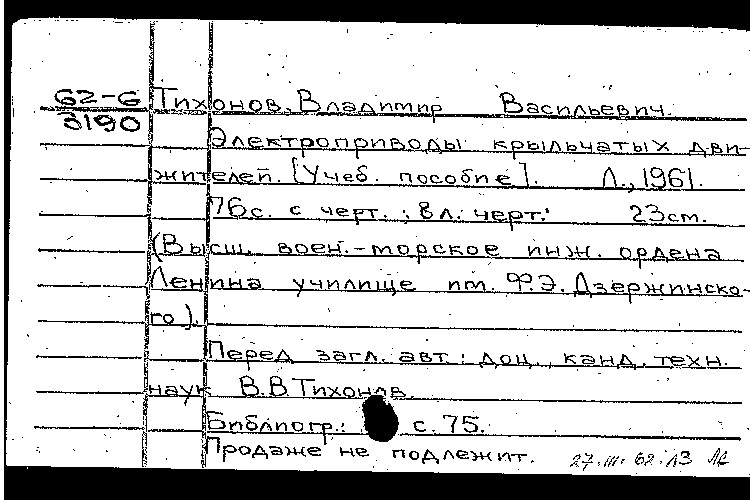 62-6
3190
Тихонов, Владимир Васильевич.
Электроприводы крыльчатых дви-
жителей. [Учеб. пособие]. Л., 1961.
76 с. с черт.; 8 л. черт. 23 см.
(Высш. воен.-морское инж. ордена
Ленина училище им. Ф.Э. Дзержинско-
го).
Перед загл. авт.: доц., канд. техн.
наук В.В. Тихонов.
Библиогр.: с. 75.
Продаже не подлежит. 27.III.62.ЛЗ